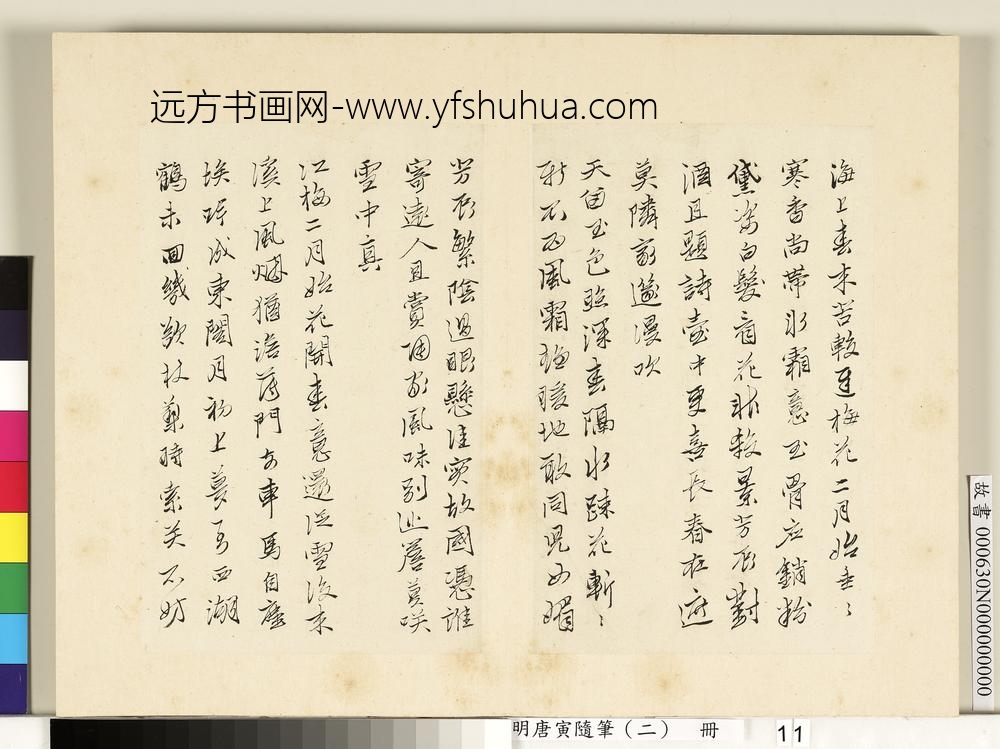 远方书画网-www.yfshuhua.com
海上春來苦較遲梅花二月始垂〻
寒香尚帶冰霜意玉骨应銷粉
黛姿白髮看花非殺景芳辰對
酒且題詩壺中更喜長春在
莫隣家邃漫吹
天与玉色照深春隔水疎花嶄〻
新不爲風霜趨暖地敢同児女媚
芳辰繁陰過眼懸佳實故國憑誰
寄遠人且賞
家風味別巡簷莫咲
雪中真
江梅二月始花開春意還從雪後来
溪上風烟猶澹薄門前車馬自塵
埃
成東閣月初上夢可西湖
鶴未回幾欲杖藜時索笑不妨
故書 000630N000000000
明唐寅隨筆（二） 冊
11